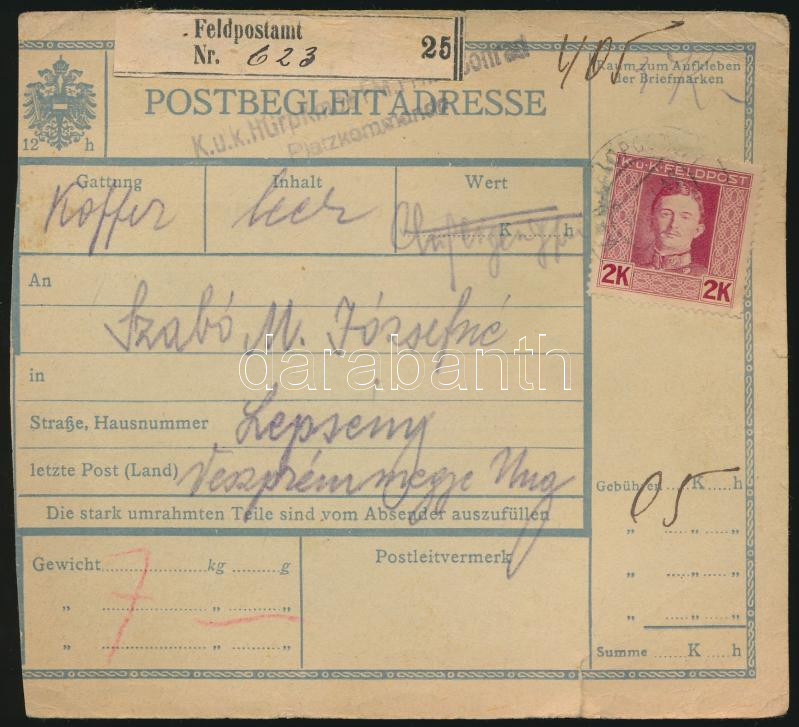 Feldpostamt
Nr. 623 25
405
Raum zum Aufkleben
der Briefmarken
POSTBEGLEITADRESSE
K.u.k.
Platzkommando
12 h
K.u.K. FELDPOST
2K 2K
Gattung Inhalt Wert
Koffer leer
K h
An
Szabó M. Józsefné
darabanth
in
Straße, Hausnummer Lepseny
letzte Post (Land) Veszprém megye Ung
Die stark umrahmten Teile sind vom Absender auszufüllen
Gebühren K h
05
" " "
" " "
" " "
Summe K h
Gewicht kg g
7 —
" " "
" " "
Postleitvermerk